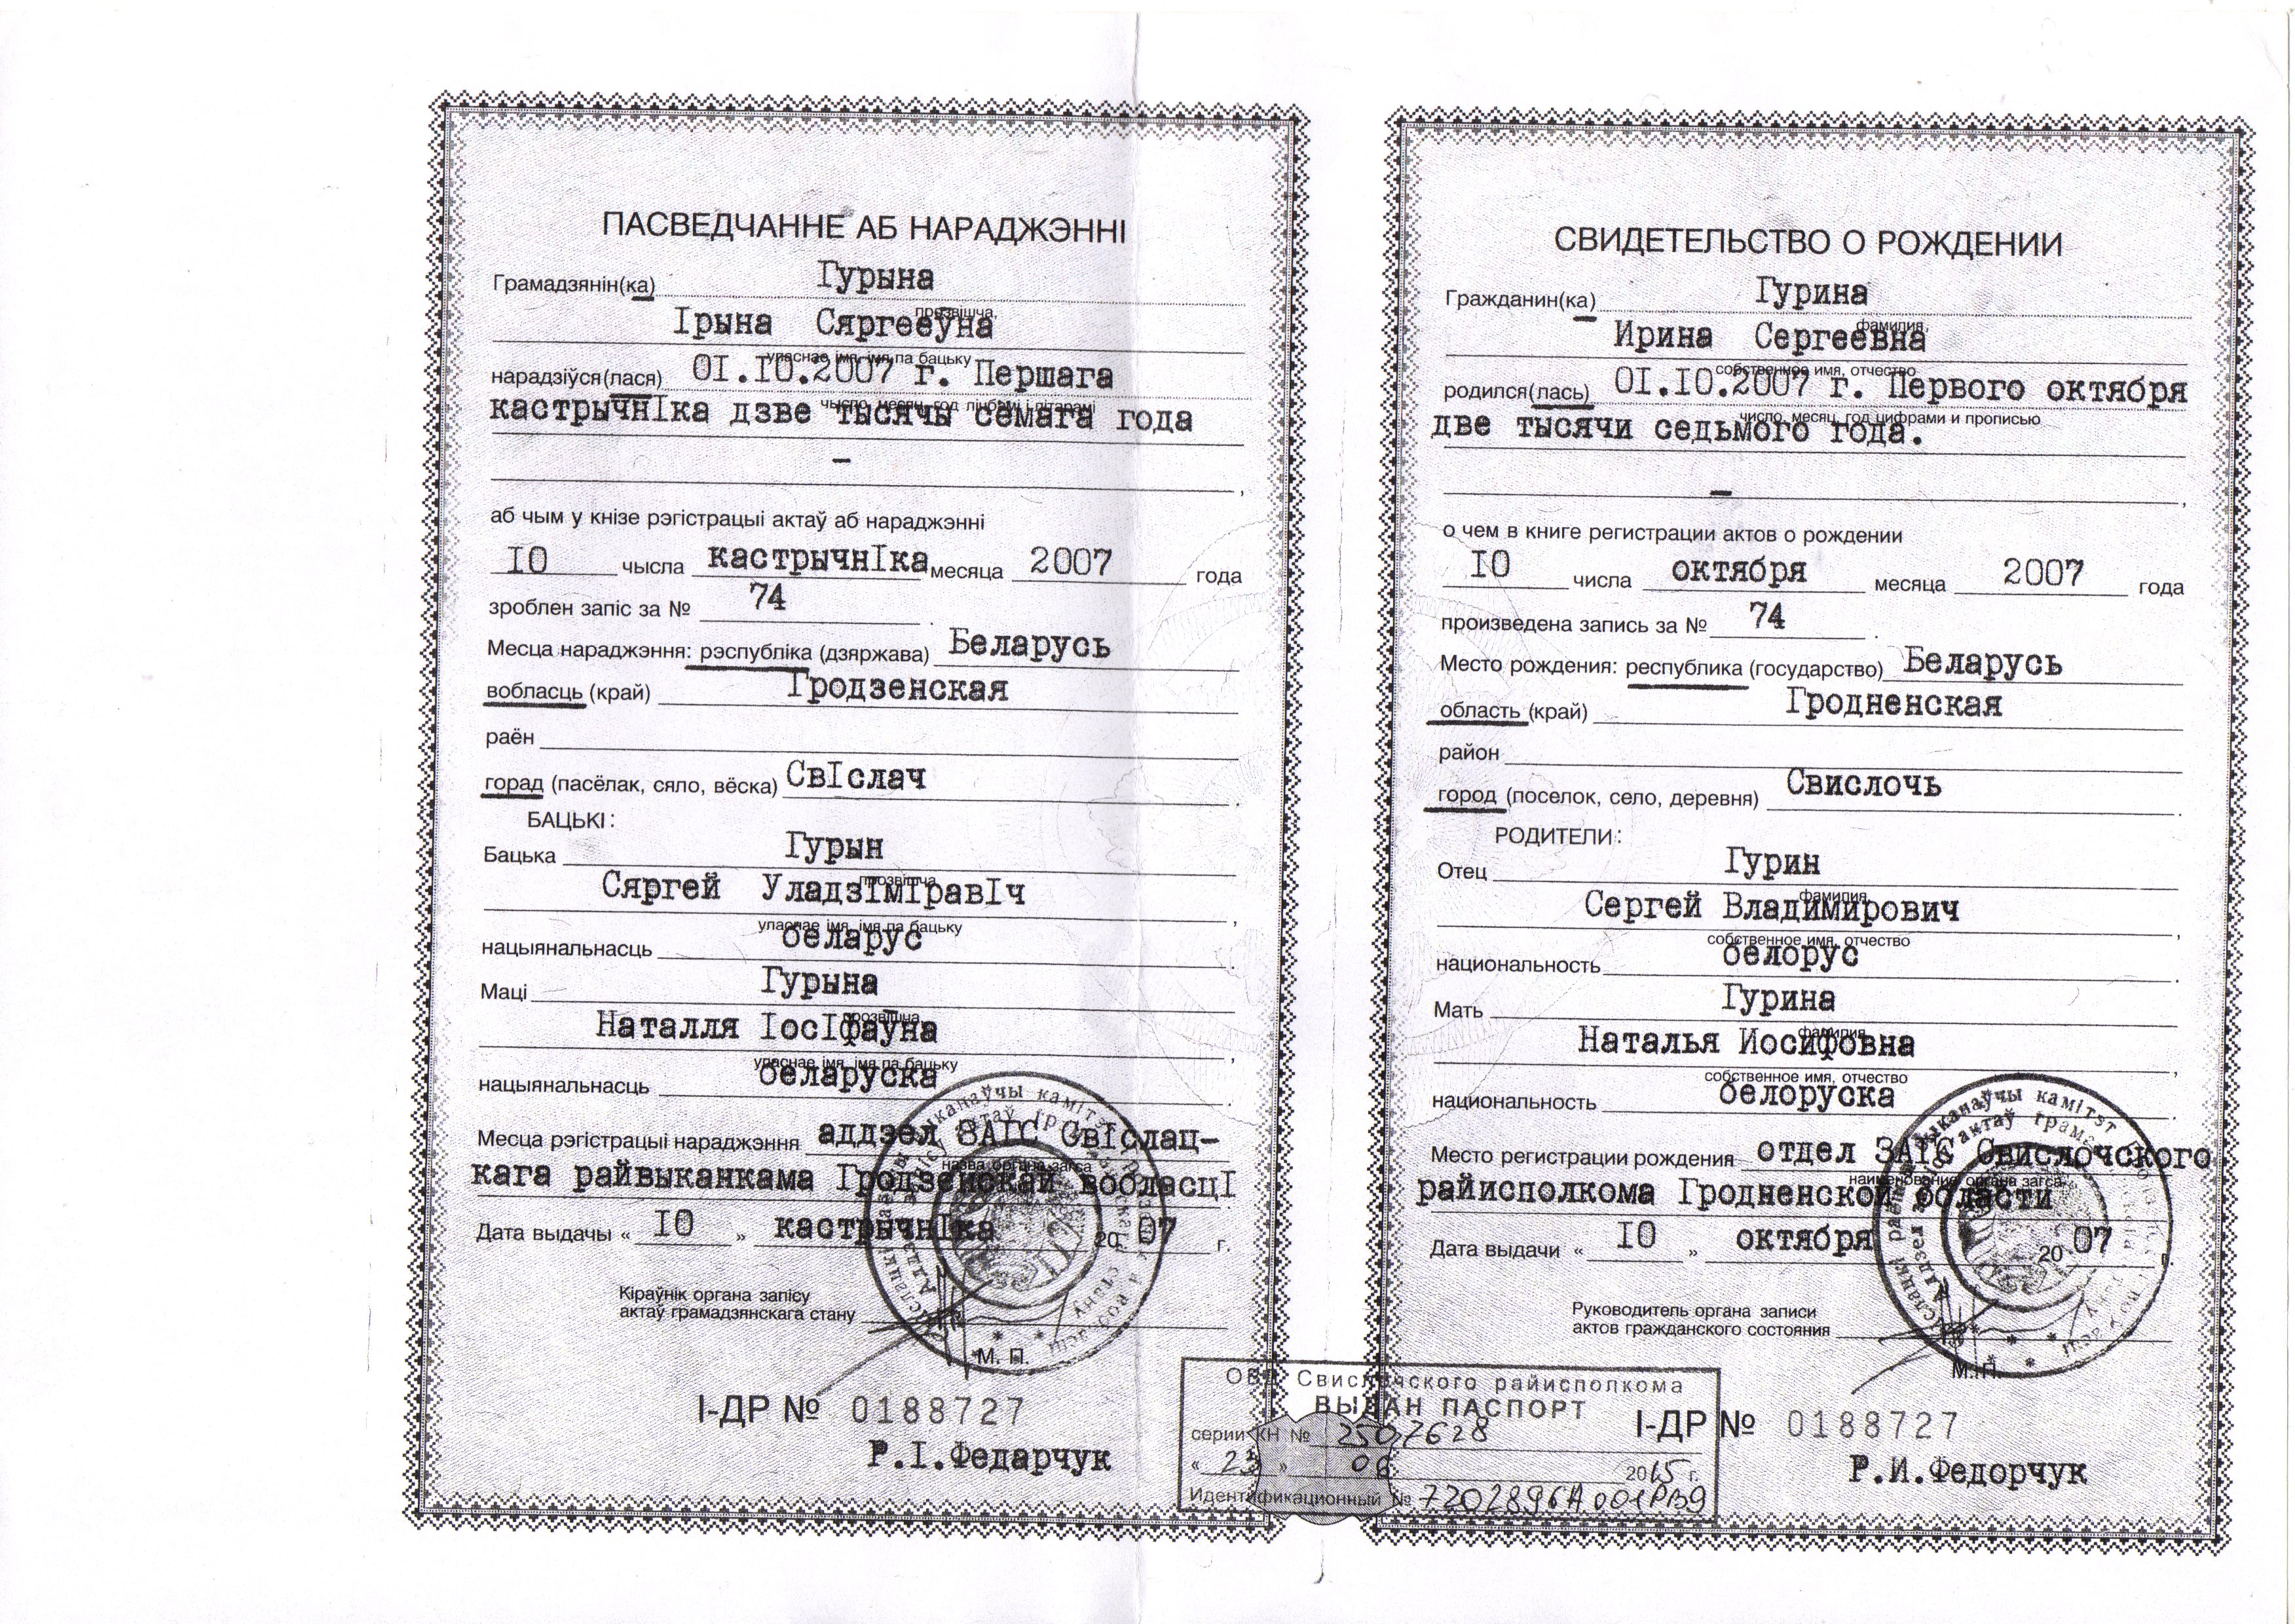 ПАСВЕДЧАННЕ АБ НАРАДЖЭННІ
Грамадзянін(ка) Гурына
прозвішча,
Ірына Сяргееўна
уласнае імя, імя па бацьку
нарадзіўся(лася) 01.10.2007 г. Першага
чысло, месяц, год лічбамі і літарамі
кастрычніка дзве тысячы семага года
–
,
аб чым у кнізе рэгістрацыі актаў аб нараджэнні
10 чысла кастрычніка месяца 2007 года
зроблен запіс за № 74.
Месца нараджэння: рэспубліка (дзяржава) Беларусь
вобласць (край) Гродзенская
раён
горад (пасёлак, сяло, вёска) Свіслач.
БАЦЬКІ:
Бацька Гурын
прозвішча
Сяргей Уладзіміравіч,
уласнае імя, імя па бацьку
нацыянальнасць беларус.
Маці Гурына
прозвішча
Наталля Іосіфаўна,
уласнае імя, імя па бацьку
нацыянальнасць беларуска.
Месца рэгістрацыі нараджэння аддзел ЗАГС Свіслац-
назва органа загса
кага райвыканкама Гродзенскай вобласці.
Дата выдачы « 10 » кастрычніка 20 07 г.
Кіраўнік органа запісу
актаў грамадзянскага стану
М. П.
І-ДР № 0188727
Р.І.Федарчук
СВИДЕТЕЛЬСТВО О РОЖДЕНИИ
Гражданин(ка) Гурина
фамилия,
Ирина Сергеевна
собственное имя, отчество
родился(лась) 01.10.2007 г. Первого октября
число, месяц, год цифрами и прописью
две тысячи седьмого года.
–
,
о чем в книге регистрации актов о рождении
10 числа октября месяца 2007 года
произведена запись за № 74.
Место рождения: республика (государство) Беларусь
область (край) Гродненская
район
город (поселок, село, деревня) Свислочь.
РОДИТЕЛИ:
Отец Гурин
фамилия
Сергей Владимирович,
собственное имя, отчество
национальность белорус.
Мать Гурина
фамилия
Наталья Иосифовна,
собственное имя, отчество
национальность белоруска.
Место регистрации рождения отдел ЗАГС Свислочского
наименование органа загса
райисполкома Гродненской области
Дата выдачи « 10 » октября 20 07 г.
Руководитель органа записи
актов гражданского состояния
М.П.
І-ДР № 0188727
Р.И.Федорчук
ОВД Свислочского райисполкома
ВЫДАН ПАСПОРТ
серии КН № 2507628
« 23 » 06 2015 г.
Идентификационный № 7202896А001РВ9